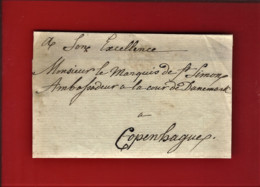 A Son Excellence
Monsieur le Marquis de St Simon
Ambassadeur a la cour de Danemark
a
Copenhague.